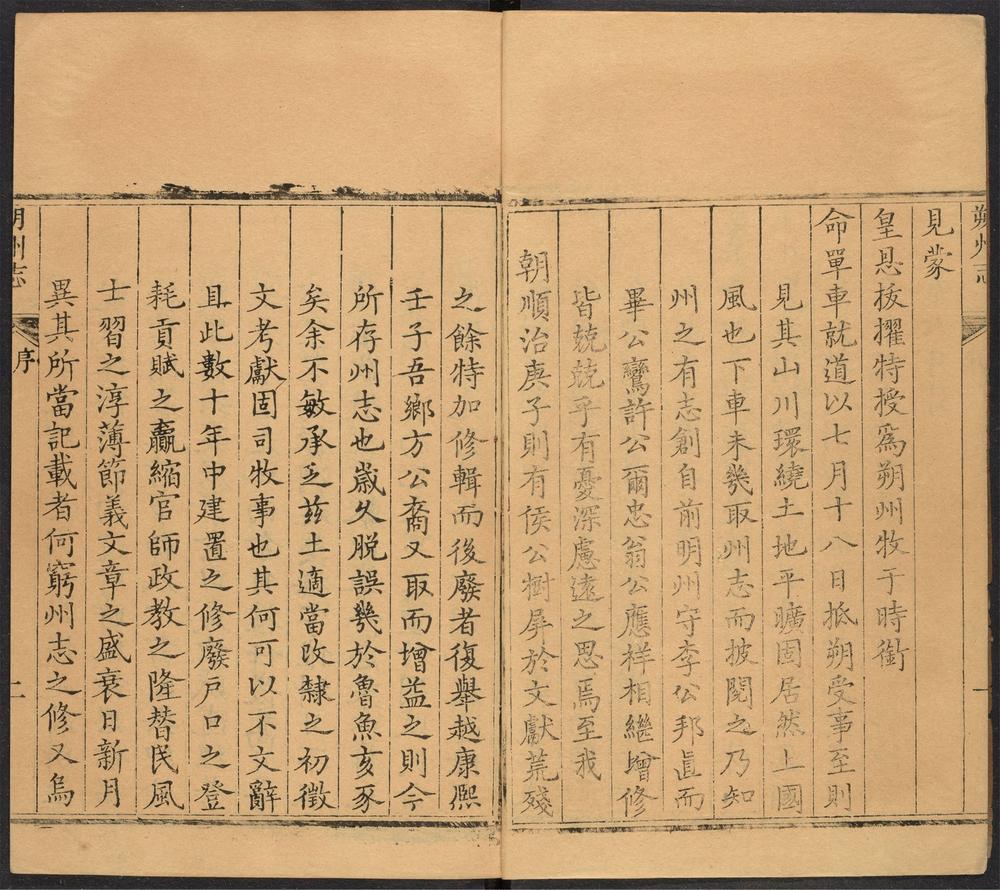 朔州志
見蒙
皇恩拔擢特授爲朔州牧于時銜
命單車就道以七月十八日抵朔受事至則
見其山川環繞土地平曠固居然上國
風也下車未幾取州志而披閱之乃知
州之有志創自前明州守李公邦直而
畢公鸞許公爾忠翁公應祥相繼增修
皆兢兢乎有憂深慮遠之思焉至我
朝順治庚子則有侯公樹屏於文獻荒殘
之餘特加修輯而後廢者復舉越康熈
壬子吾鄉方公裔又取而增益之則今
所存州志也歲久脱誤幾於魯魚亥豕
矣余不敏承乏兹土適當改隸之初徵
文考獻固司牧事也其何可以不文辭
且此數十年中建置之修廢戸口之登
耗貢賦之贏縮官師政教之隆替民風
士習之淳薄節義文章之盛衰日新月
異其所當記載者何窮州志之修又烏
朔州志
序
二